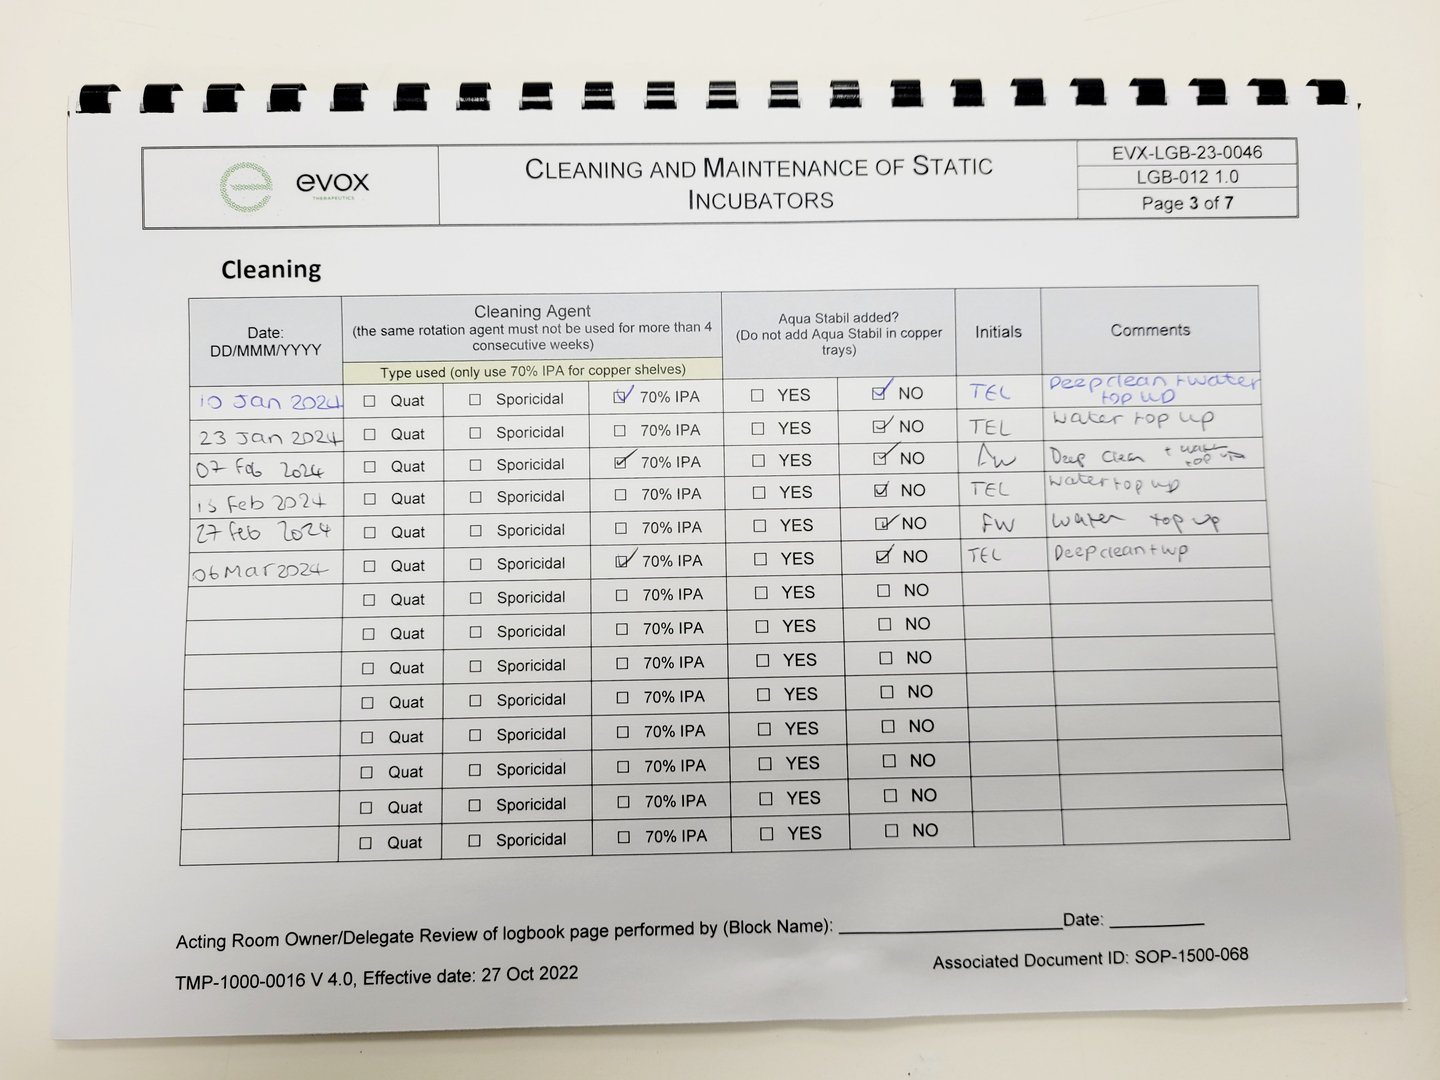 evox
THERAPEUTICS
CLEANING AND MAINTENANCE OF STATIC
INCUBATORS
EVX-LGB-23-0046
LGB-012 1.0
Page 3 of 7
Cleaning
Date:
DD/MMM/YYYY
Cleaning Agent
(the same rotation agent must not be used for more than 4
consecutive weeks)
Type used (only use 70% IPA for copper shelves)
Aqua Stabil added?
(Do not add Aqua Stabil in copper
trays)
Initials
Comments
10 Jan 2024 ☐ Quat ☐ Sporicidal ☑ 70% IPA ☐ YES ☑ NO TEL Deep clean + water
top up
23 Jan 2024 ☐ Quat ☐ Sporicidal ☐ 70% IPA ☐ YES ☑ NO TEL water top up
07 Feb 2024 ☐ Quat ☐ Sporicidal ☑ 70% IPA ☐ YES ☑ NO Deep clean + water
top up
Feb 2024 ☐ Quat ☐ Sporicidal ☐ 70% IPA ☐ YES ☑ NO TEL water top up
27 Feb 2024 ☐ Quat ☐ Sporicidal ☐ 70% IPA ☐ YES ☑ NO FW water top up
06 Mar 2024 ☐ Quat ☐ Sporicidal ☑ 70% IPA ☐ YES ☑ NO TEL Deep clean +
☐ Quat ☐ Sporicidal ☐ 70% IPA ☐ YES ☐ NO
☐ Quat ☐ Sporicidal ☐ 70% IPA ☐ YES ☐ NO
☐ Quat ☐ Sporicidal ☐ 70% IPA ☐ YES ☐ NO
☐ Quat ☐ Sporicidal ☐ 70% IPA ☐ YES ☐ NO
☐ Quat ☐ Sporicidal ☐ 70% IPA ☐ YES ☐ NO
☐ Quat ☐ Sporicidal ☐ 70% IPA ☐ YES ☐ NO
☐ Quat ☐ Sporicidal ☐ 70% IPA ☐ YES ☐ NO
☐ Quat ☐ Sporicidal ☐ 70% IPA ☐ YES ☐ NO
Acting Room Owner/Delegate Review of logbook page performed by (Block Name): Date:
TMP-1000-0016 V 4.0, Effective date: 27 Oct 2022
Associated Document ID: SOP-1500-068